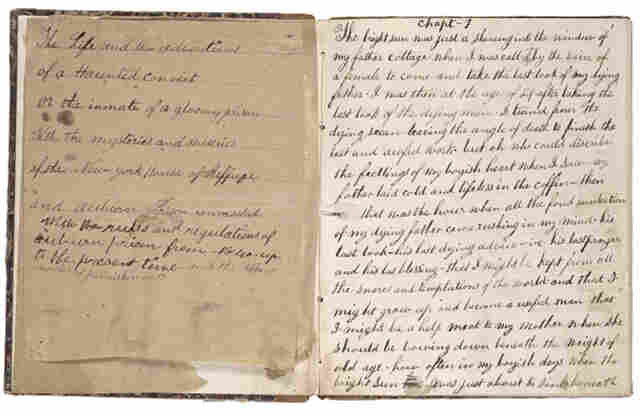 The Life and the adventures
of a Haunted convict
or the inmate of a gloomy prison
With the mysteries and miseries
of the New york House of Reffuge
and auburn Prison unmasked
With the rules and regulations of
auburn prison from 1840 up
to the present time and the
Chapt - 1
The bright sun was just a shineing into the window of
my father cottage when I was call by the voice of
a female to come and take the last look of my dying
father - I was then at the age of six after taking the
last look of the dying man I turned from the
dying seen leaveing the angle of death to finish the
last and awful work but oh who could discribe
the feettlings of my boyish heart when I saw my
father laid cold and lifeless in the coffin - then
that was the hour when all the fond recolection
of my dying father came rushing in my mind his
last look - his last dying advice - in his last prayer
and his last blessing - that I might be kept from all
the snares and temptations of the world and that I
might grow up and become a useful man that
I might be a help meat to my Mother when she
should be bowing down beneath the weight of
old age - how often in my boyish days when the
bright sun was just about to sink beneath